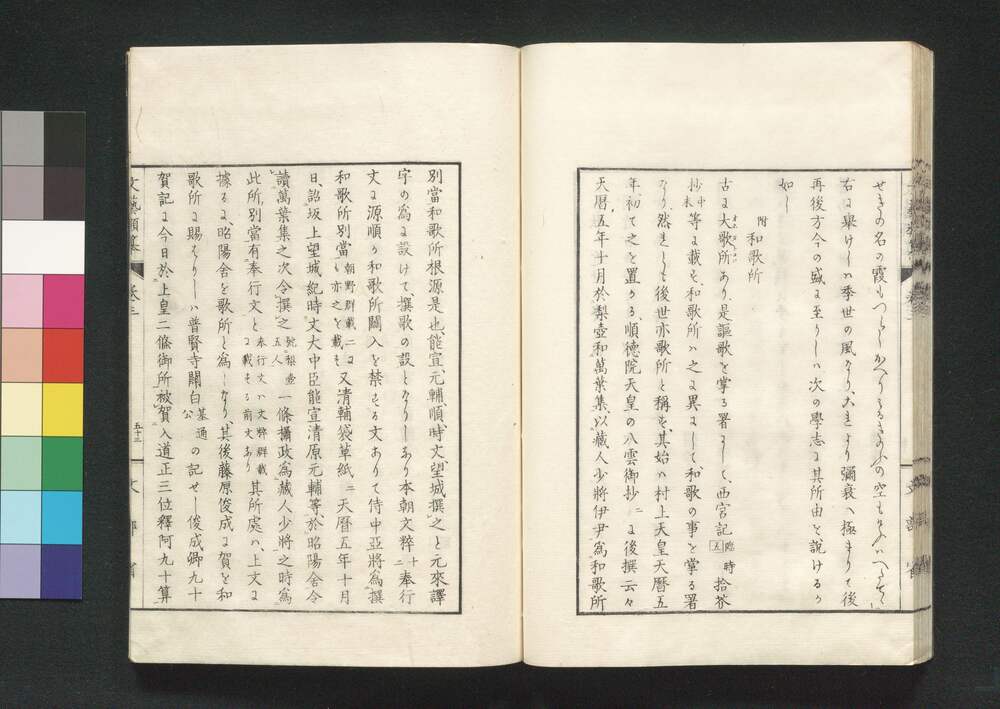 右に擧けしハ季世の風なり、大キより彌衰へ極まりて後
再後方今の盛に至りしハ次の學志に其所由を說けるか
如し
附 和歌所
古に大歌所あり、是謳歌を掌る署にして、西宮記 臨時五 拾芥
抄 中末 等に載せ、和歌所ハ之に異にして、和歌の事を掌る署
なり、然れとも後世亦歌所と稱せ、其始ハ村上天皇天曆五
年初て之を置かる順德院天皇の八雲御抄 二 に後撰云々
天曆五年十月於梨壺和萬葉集、以藏人少將伊尹爲和歌所
別當和歌所根源是也、能宣、元輔、順、時文、望城撰之と元來譯
字の爲に設けて、撰歌の設となりしあり、本朝文粹 十二 奉行
文に源順か和歌所闌入を禁せる文ありて侍中亞將爲撰
和歌所別當 朝野群載ニも亦之を載す 又淸輔袋草紙 二 天曆五年十月
日、詔坂上望城紀時文大中臣能宣淸原元輔等、於昭陽舍令
讀萬葉集之次令撰之 號梨壺五人 一條攝政爲藏人少將之時爲
此所別當有奉行文と 奉行文ハ文粹群載に載する前文あり 其所處ハ、上文に
據るに、昭陽舍を歌所と爲しなり、其後藤原俊成に賀を和
歌所に賜はりしハ普賢寺關白 基通公 の記せし俊成卿九十
賀記に今日於上皇二條御所被賀入道正三位釋阿九十算
文藝類纂 卷三 五十三 文部省